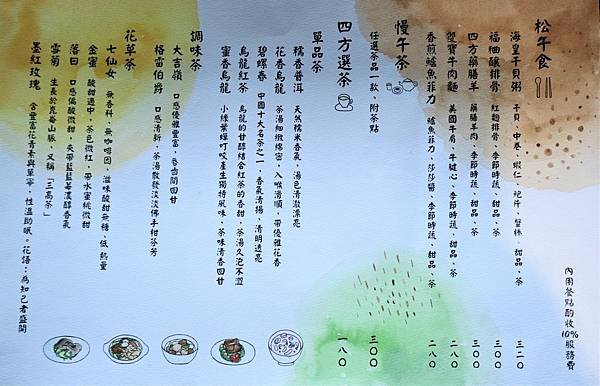 松午食
海皇干貝粥 干貝、中卷、蝦仁、花片、蟹棒、甜品、茶 三二〇
福柚釀排骨 紅麴排骨、季節時蔬、甜品、茶 三〇〇
四方藥膳羊 藥膳羊肉、季節時蔬、甜品、茶 三〇〇
雙寶牛肉麵 美國牛肩、牛腱心、季節時蔬、甜品、茶 二八〇
香煎鱸魚菲力 鱸魚菲力、莎莎醬、季節時蔬、甜品、茶 二八〇
慢午茶
任選茶品一款、附茶點 三〇〇
四方選茶 一八〇
單品茶
糯香普洱 天然糯米香氣、湯色清澈漂亮
花香烏龍 茶湯細緻綿密、入喉滑順、帶優雅花香
碧螺春 中國十大名茶之一，香氣清揚、清明透亮
烏龍紅茶 烏龍的甘醇結合紅茶的香甜，茶湯久泡不澀
蜜香烏龍 小綠葉蟬叮咬產生獨特風味，茶味清香回甘
調味茶
大吉嶺 口感優雅豐富，唇齒間回甘
格雷伯爵 口感清新，茶湯散發淡淡佛手柑芬芳
花草茶
七仙女 無香料、無咖啡因，滋味酸甜無糖、低熱量
金蜜 酸甜適中，茶色微紅，帶水蜜桃微甜
落日 口感偏酸微甜，夾帶藍莓等濃醇香氣
雪菊 生長於崑崙山脈，又稱「三高茶」
墨紅玫瑰 含豐富花青素與單寧，性溫助眠。花語：為知己者盛開
內用餐點酌收10%服務費